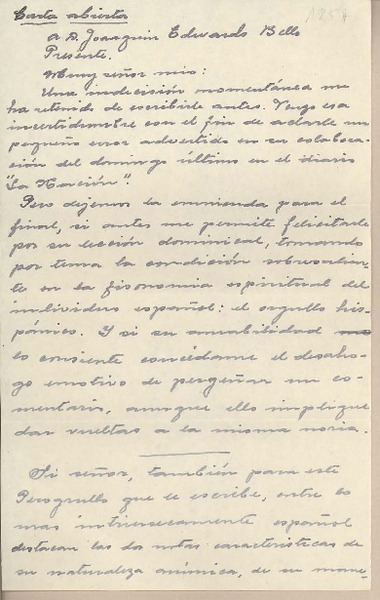 Carta abierta
a D. Joaquin Edwards Bello
Presente.
Muy señor mio:
Una indecisión momentánea me
ha retenido de escribirle antes. Vengo esa
incertidumbre con el fin de aclarle un
pequeño error advertido en su colabora-
ción del domingo último en el diario
"La Nación".
Pero dejemos la enmienda para el
final, si antes me permite felicitarle
por su lección dominical, tomando
por tema la condición sobresalien-
te en la fisonomia espiritual del
individuo español: el orgullo his-
pánico. Y si su amabilidad
lo consiente concédame el desaho-
go emotivo de pergeñar un co-
mentario, aunque ello implique
dar vueltas a la misma noria.
Si señor, también para este
Perogrullo que le escribe, entre lo
mas intrinsecamente español
destacan las dos notas caracteristicas de
su naturaleza anímica, de su mane-